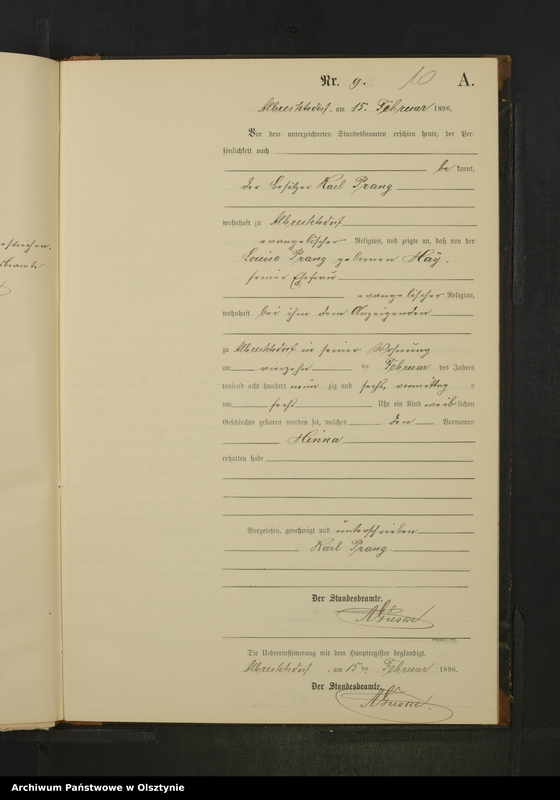 Nr. 9. 10 A.
Albrechtsdorf, am 15. Februar 1896.
Vor dem unterzeichneten Standesbeamten erschien heute, der Per-
sönlichkeit nach
be kannt,
der Besitzer Karl Prang
wohnhaft zu Albrechtsdorf
evangelischer Religion, und zeigte an, daß von der
Louise Prang gebornen Häÿ,
seiner Ehefrau
evangelischer Religion,
wohnhaft bei ihm dem Anzeigenden
zu Albrechtsdorf in seiner Wohnung
am vierzehn ten Februar des Jahres
tausend acht hundert neun zig und sechs, vormittag s
um sechs Uhr ein Kind weiblichen
Geschlechts geboren worden sei, welches den Vornamen
Minna
erhalten habe
Vorgelesen, genehmigt und unterschrieben
Karl Prang
Der Standesbeamte.
Die Uebereinstimmung mit dem Hauptregister beglaubigt.
Albrechtsdorf, am 15ten Februar 1896.
Der Standesbeamte.
Archiwum Państwowe w Olsztynie